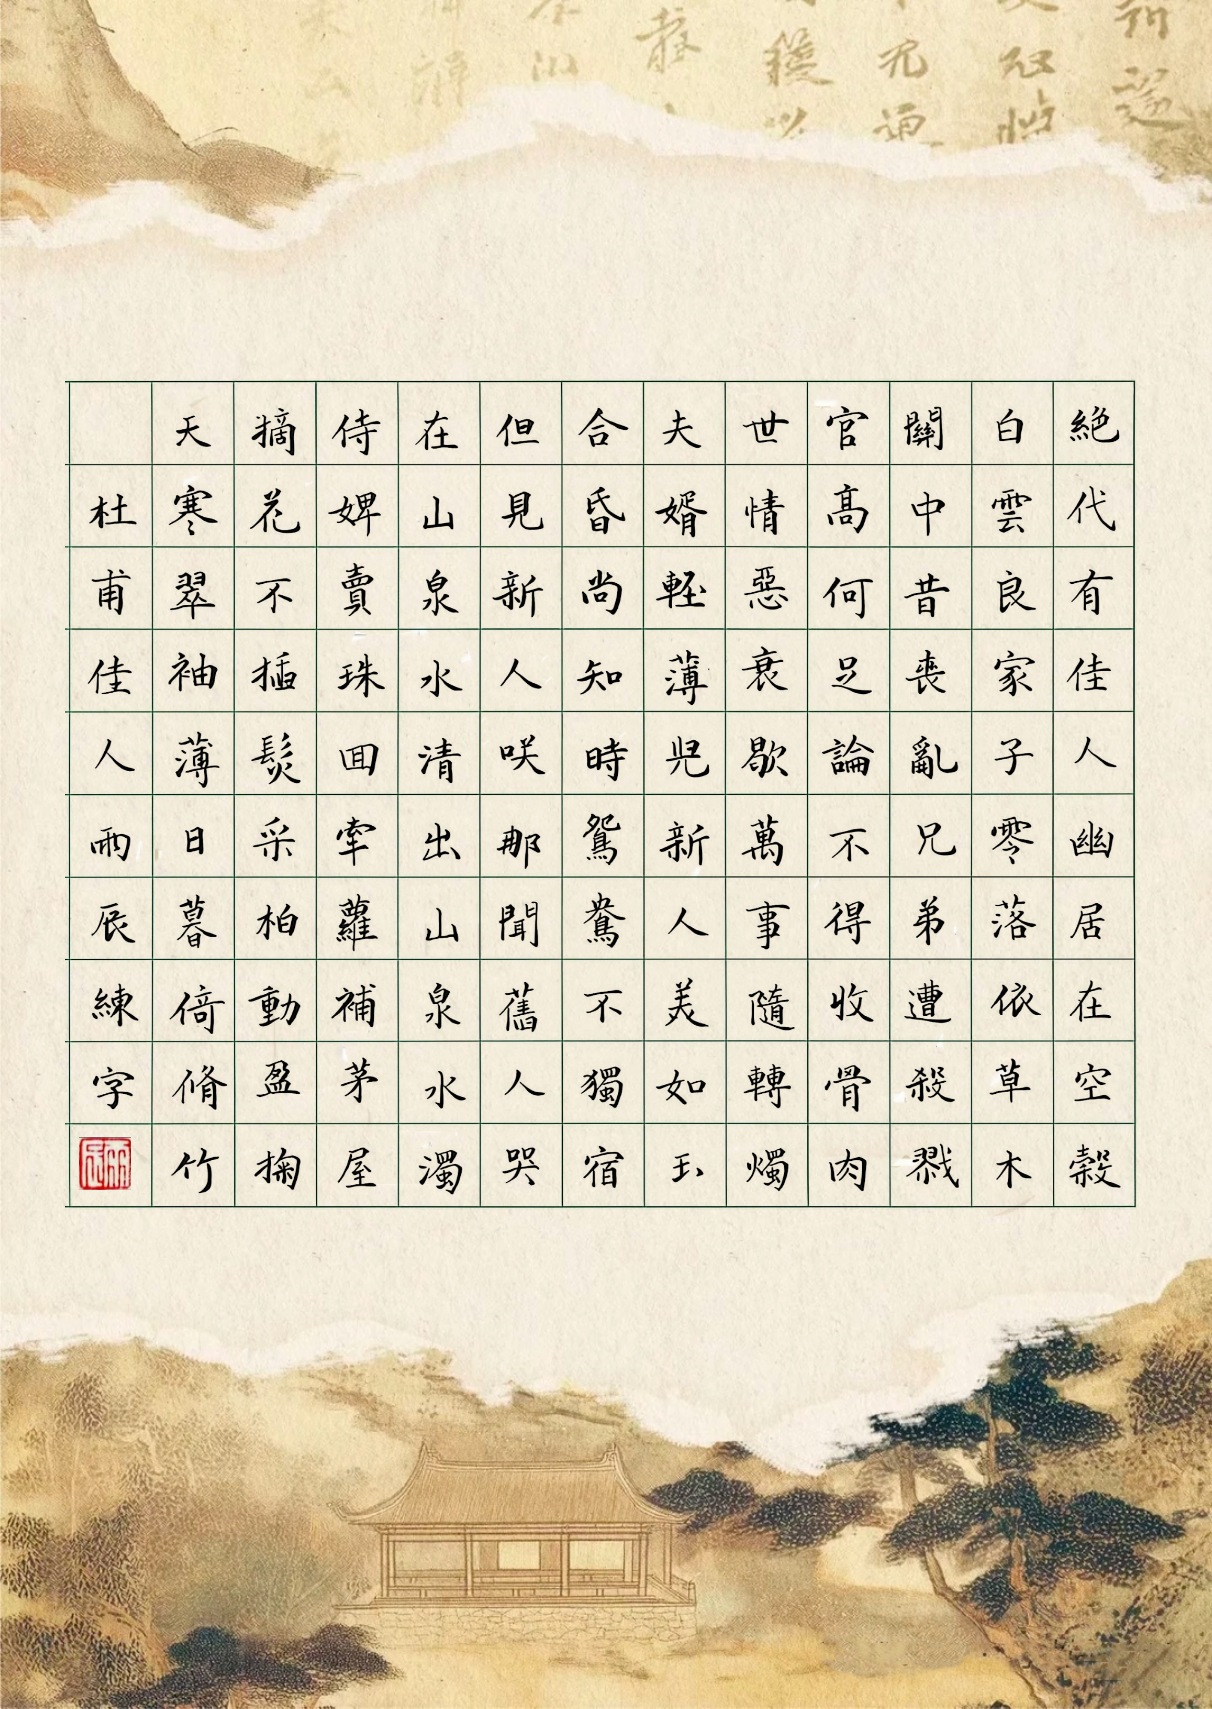 絕代有佳人幽居在空穀
白雲良家子零落依草木
關中昔喪亂兄弟遭殺戮
官高何足論不得收骨肉
世情惡衰歇萬事隨轉燭
夫婿輕薄兒新人美如玉
合昏尚知時鴛鴦不獨宿
但見新人咲那聞舊人哭
在山泉水清出山泉水濁
侍婢賣珠回牽蘿補茅屋
摘花不插髮采柏動盈掬
天寒翠袖薄日暮倚脩竹
杜甫佳人雨辰練字